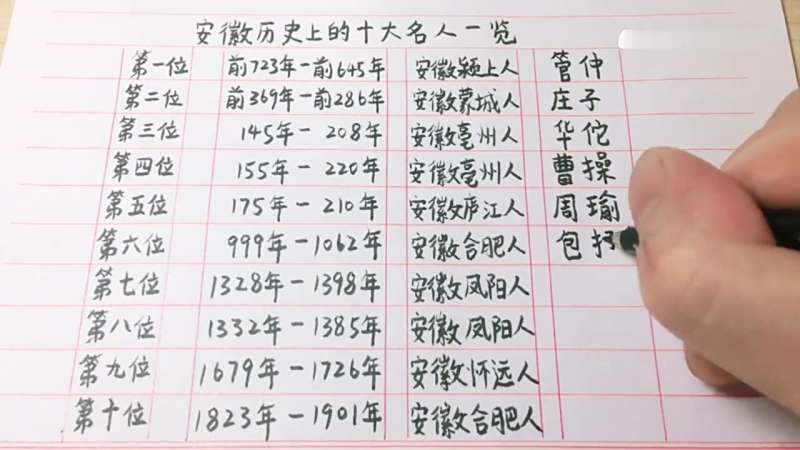 安徽历史上的十大名人一览
第一位 前723年-前645年 安徽颍上人 管仲
第二位 前369年-前286年 安徽蒙城人 庄子
第三位 145年-208年 安徽亳州人 华佗
第四位 155年-220年 安徽亳州人 曹操
第五位 175年-210年 安徽庐江人 周瑜
第六位 999年-1062年 安徽合肥人 包
第七位 1328年-1398年 安徽凤阳人
第八位 1332年-1385年 安徽凤阳人
第九位 1679年-1726年 安徽怀远人
第十位 1823年-1901年 安徽合肥人